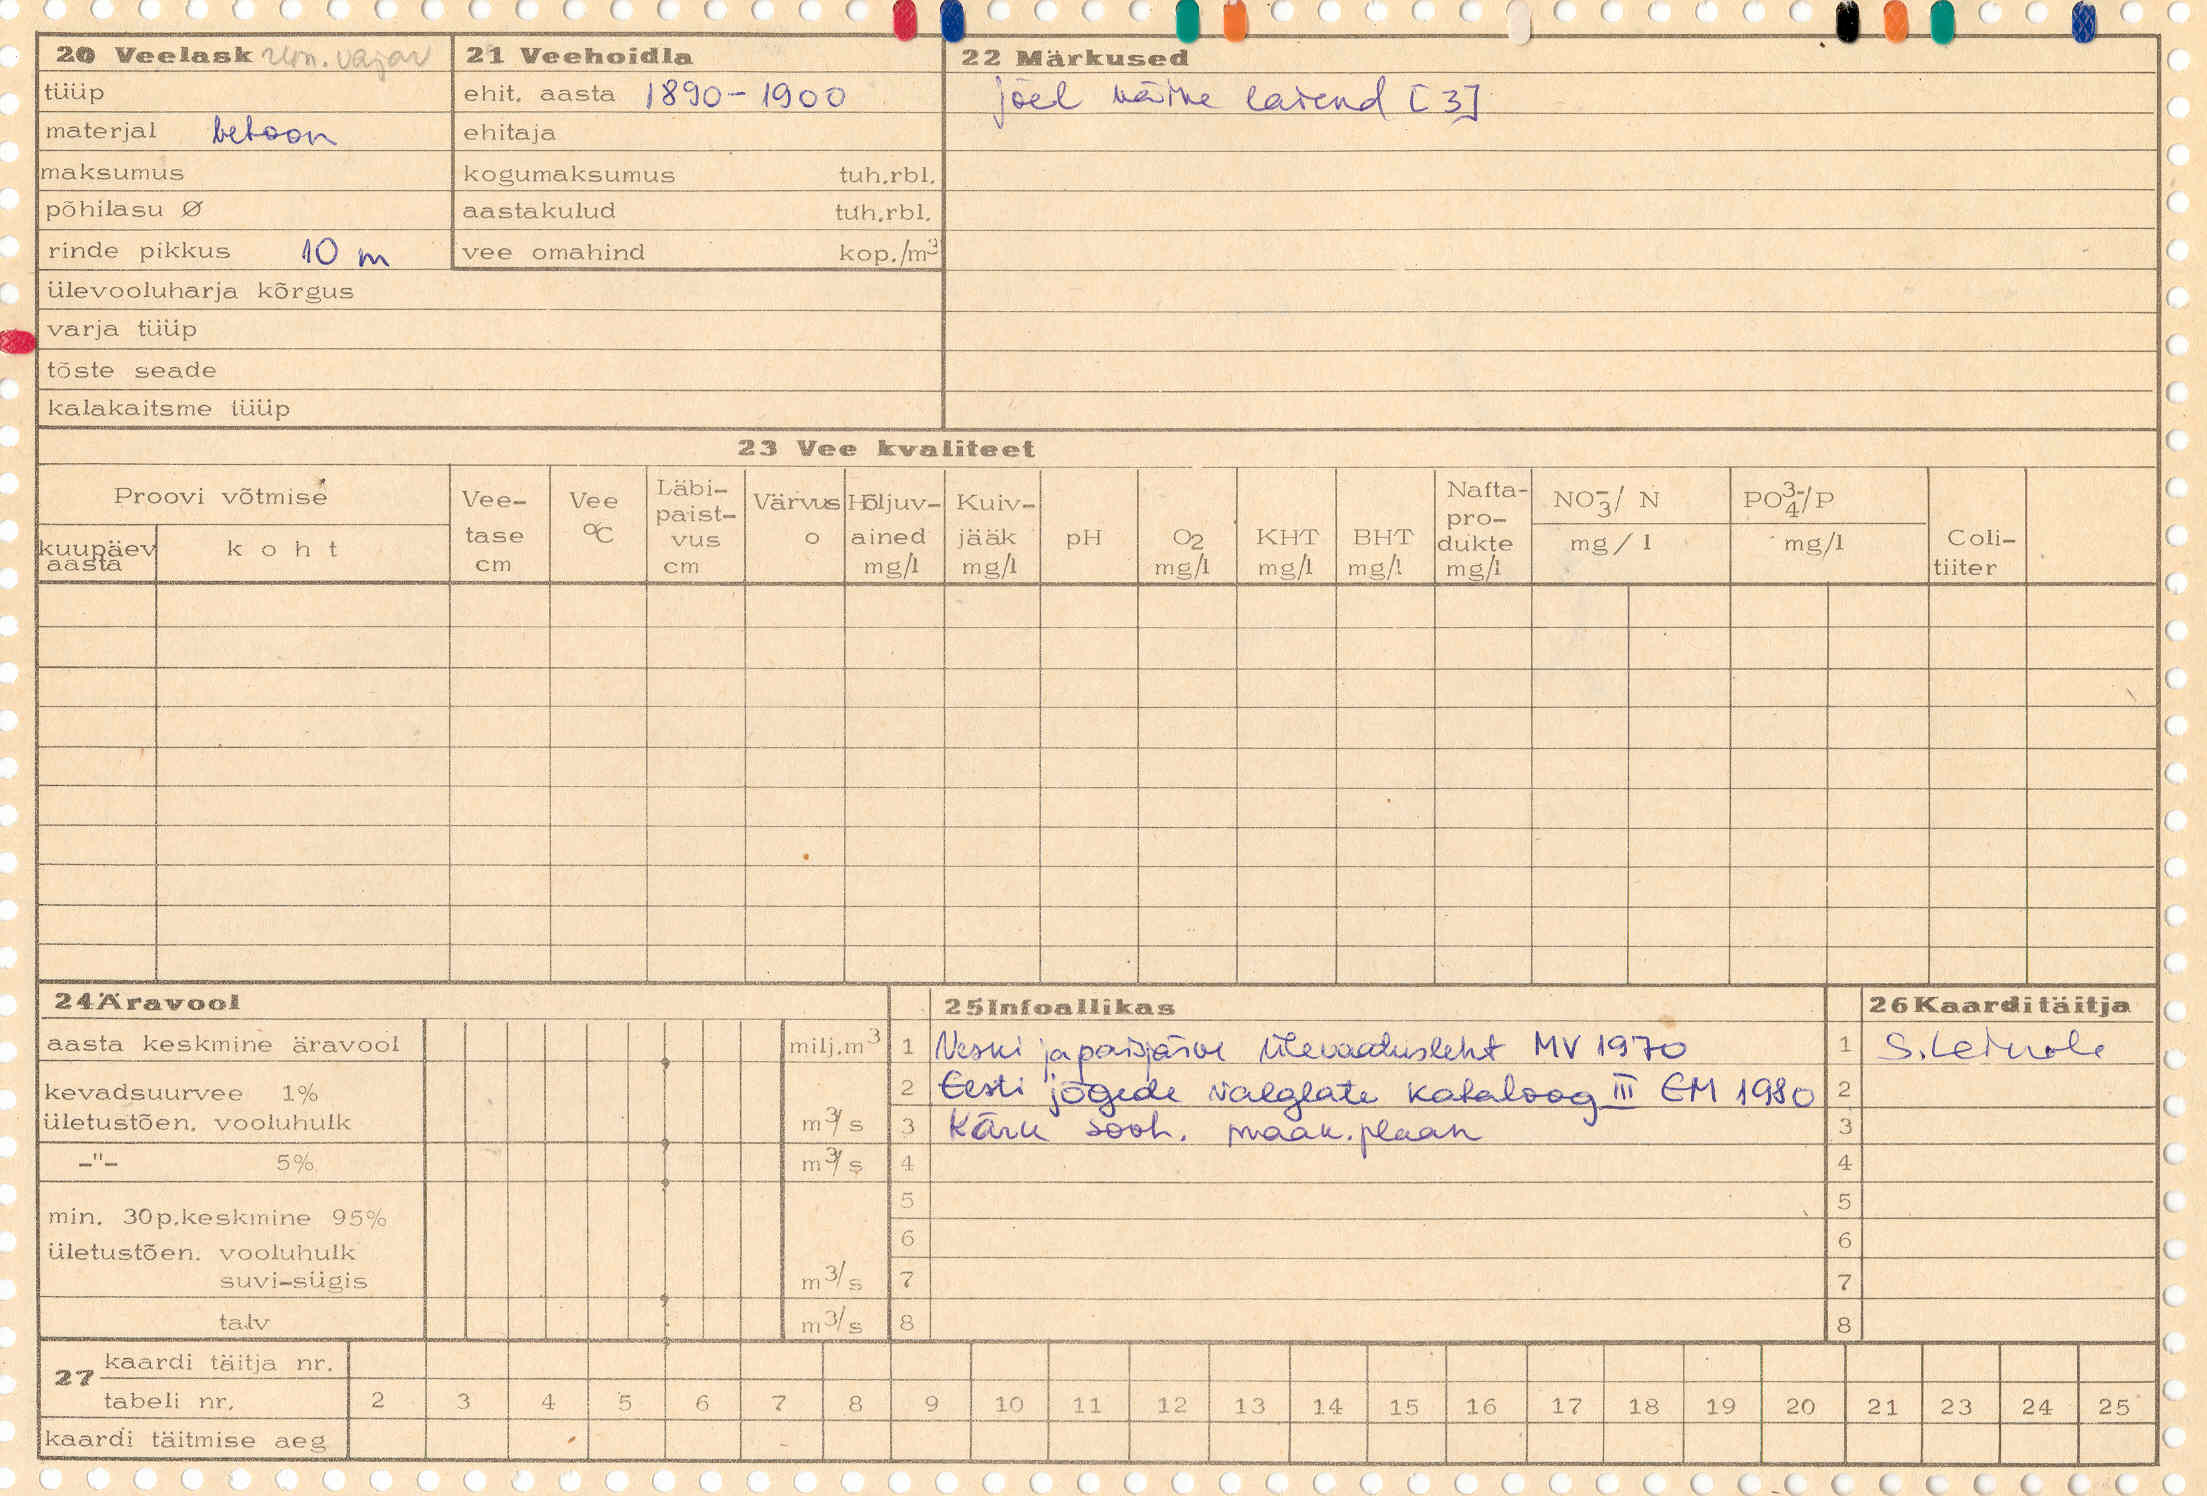 20 Veelask
tüüp
materjal betoon
maksumus
põhilasu Ø
rinde pikkus 10 m
ülevooluharja kõrgus
varja tüüp
tõste seade
kalakaitsme tüüp
21 Veehoidla
ehit. aasta 1890-1900
ehitaja
kogumaksumus tuh.rbl.
aastakulud tuh.rbl.
vee omahind kop./m3
22 Märkused
jõel väike laiend [3]
23 Vee kvaliteet
Proovi võtmise
kuupäev
aasta
koht
Vee-
tase
cm
Vee
°C
Läbi-
paist-
vus
cm
Värvus
o
Hõljuv-
ained
mg/l
Kuiv-
jääk
mg/l
pH
O2
mg/l
KHT
mg/l
BHT
mg/l
Nafta-
pro-
dukte
mg/l
NO3-/ N
mg/l
PO4 3-/P
mg/l
Coli-
tiiter
24 Äravool
aasta keskmine äravool milj.m3
kevadsuurvee 1%
ületustõen. vooluhulk m3/s
-"- 5% m3/s
min. 30p.keskmine 95%
ületustõen. vooluhulk
suvi-sügis m3/s
talv m3/s
25 Infoallikas
1 Veski ja paisjärve ülevaatusleht MV 1970
2 Eesti jõgede valglate kataloog III EM 1980
3 Käru sooh. maak.plaan
4
5
6
7
8
26 Kaarditäitja
1 S.
2
3
4
5
6
7
8
27 kaardi täitja nr.
tabeli nr. 2 3 4 5 6 7 8 9 10 11 12 13 14 15 16 17 18 19 20 21 23 24 25
kaardi täitmise aeg